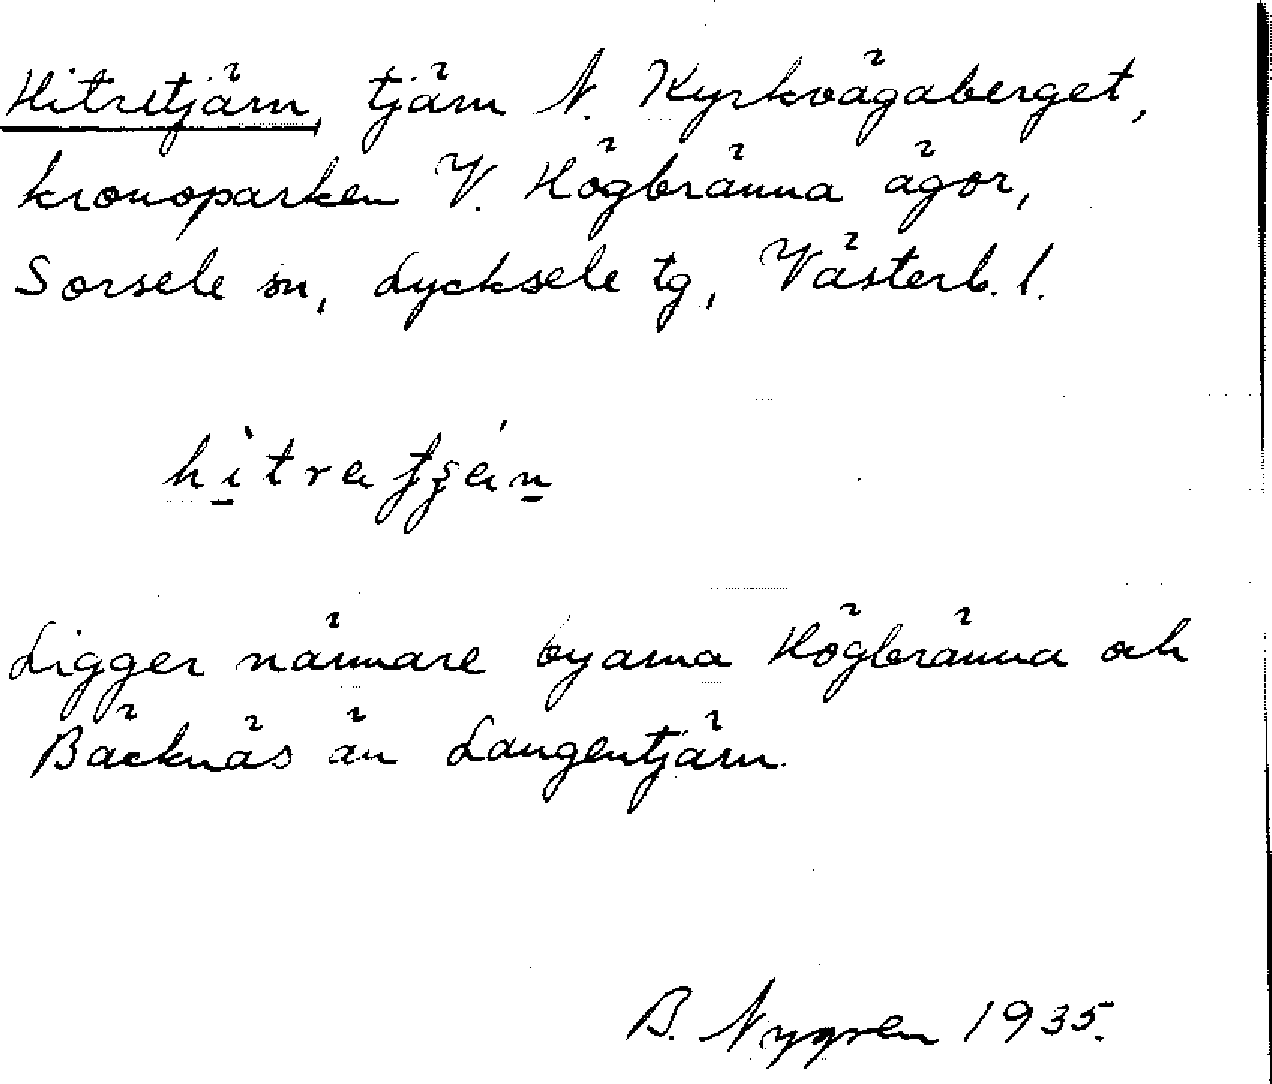 Hitretjärn, tjärn N. Kyrkvägaberget,
kronoparken V. Högbränna ägor,
Sorsele sn, Lycksele tg, Västerb. l.
Ligger närmare byarna Högbränna och
Bäcknäs än Langentjärn.
B. Nygren 1935.